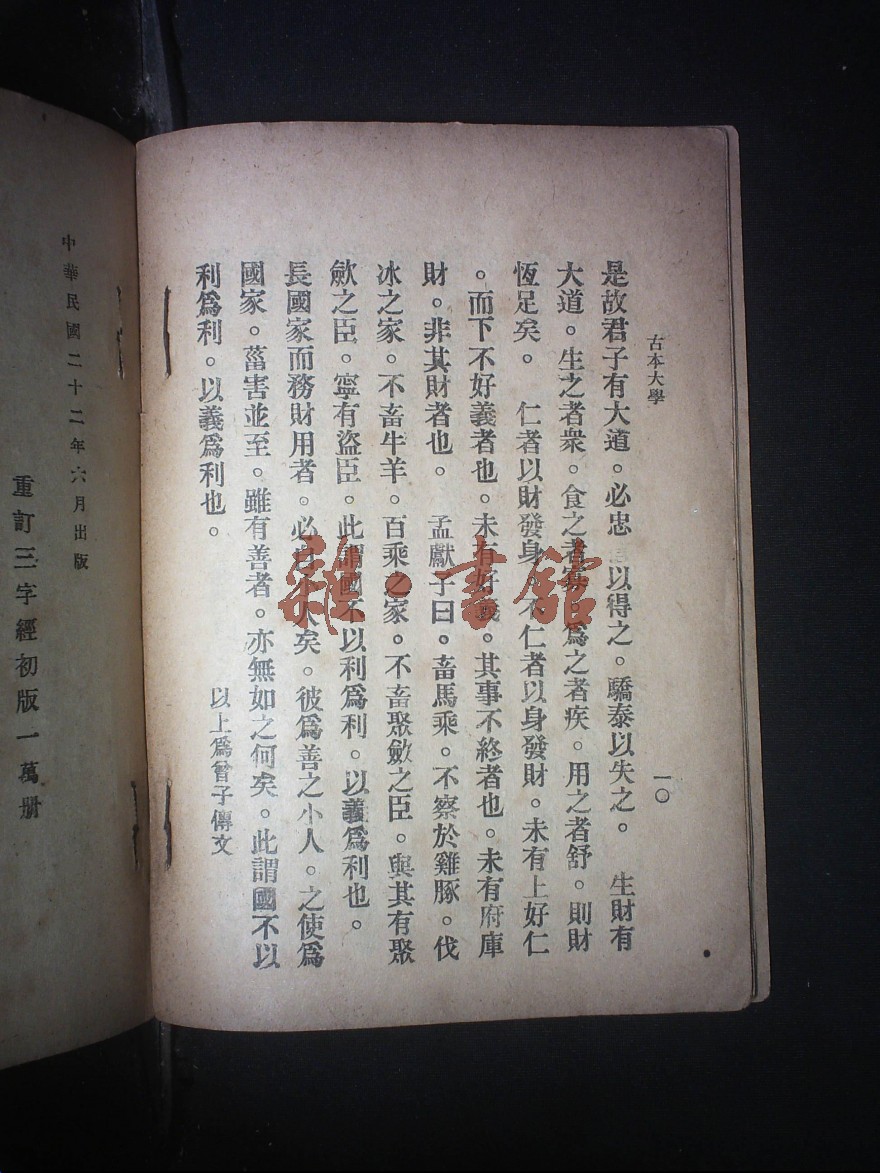 古本大學
一〇
是故君子有大道。必忠以得之。驕泰以失之。 生財有
大道。生之者衆。食之者寡。爲之者疾。用之者舒。則財
恆足矣。 仁者以財發身。不仁者以身發財。未有上好仁
。而下不好義者也。未有好義。其事不終者也。未有府庫
財。非其財者也。 孟獻子曰。畜馬乘。不察於雞豚。伐
冰之家。不畜牛羊。百乘之家。不畜聚斂之臣。與其有聚
斂之臣。寧有盜臣。此謂國不以利爲利。以義爲利也。
長國家而務財用者。必自小人矣。彼爲善之小人。之使爲
國家。菑害並至。雖有善者。亦無如之何矣。此謂國不以
利爲利。以義爲利也。
以上爲曾子傳文
中華民國二十二年六月出版
重訂三字經初版一萬册
雜·書館